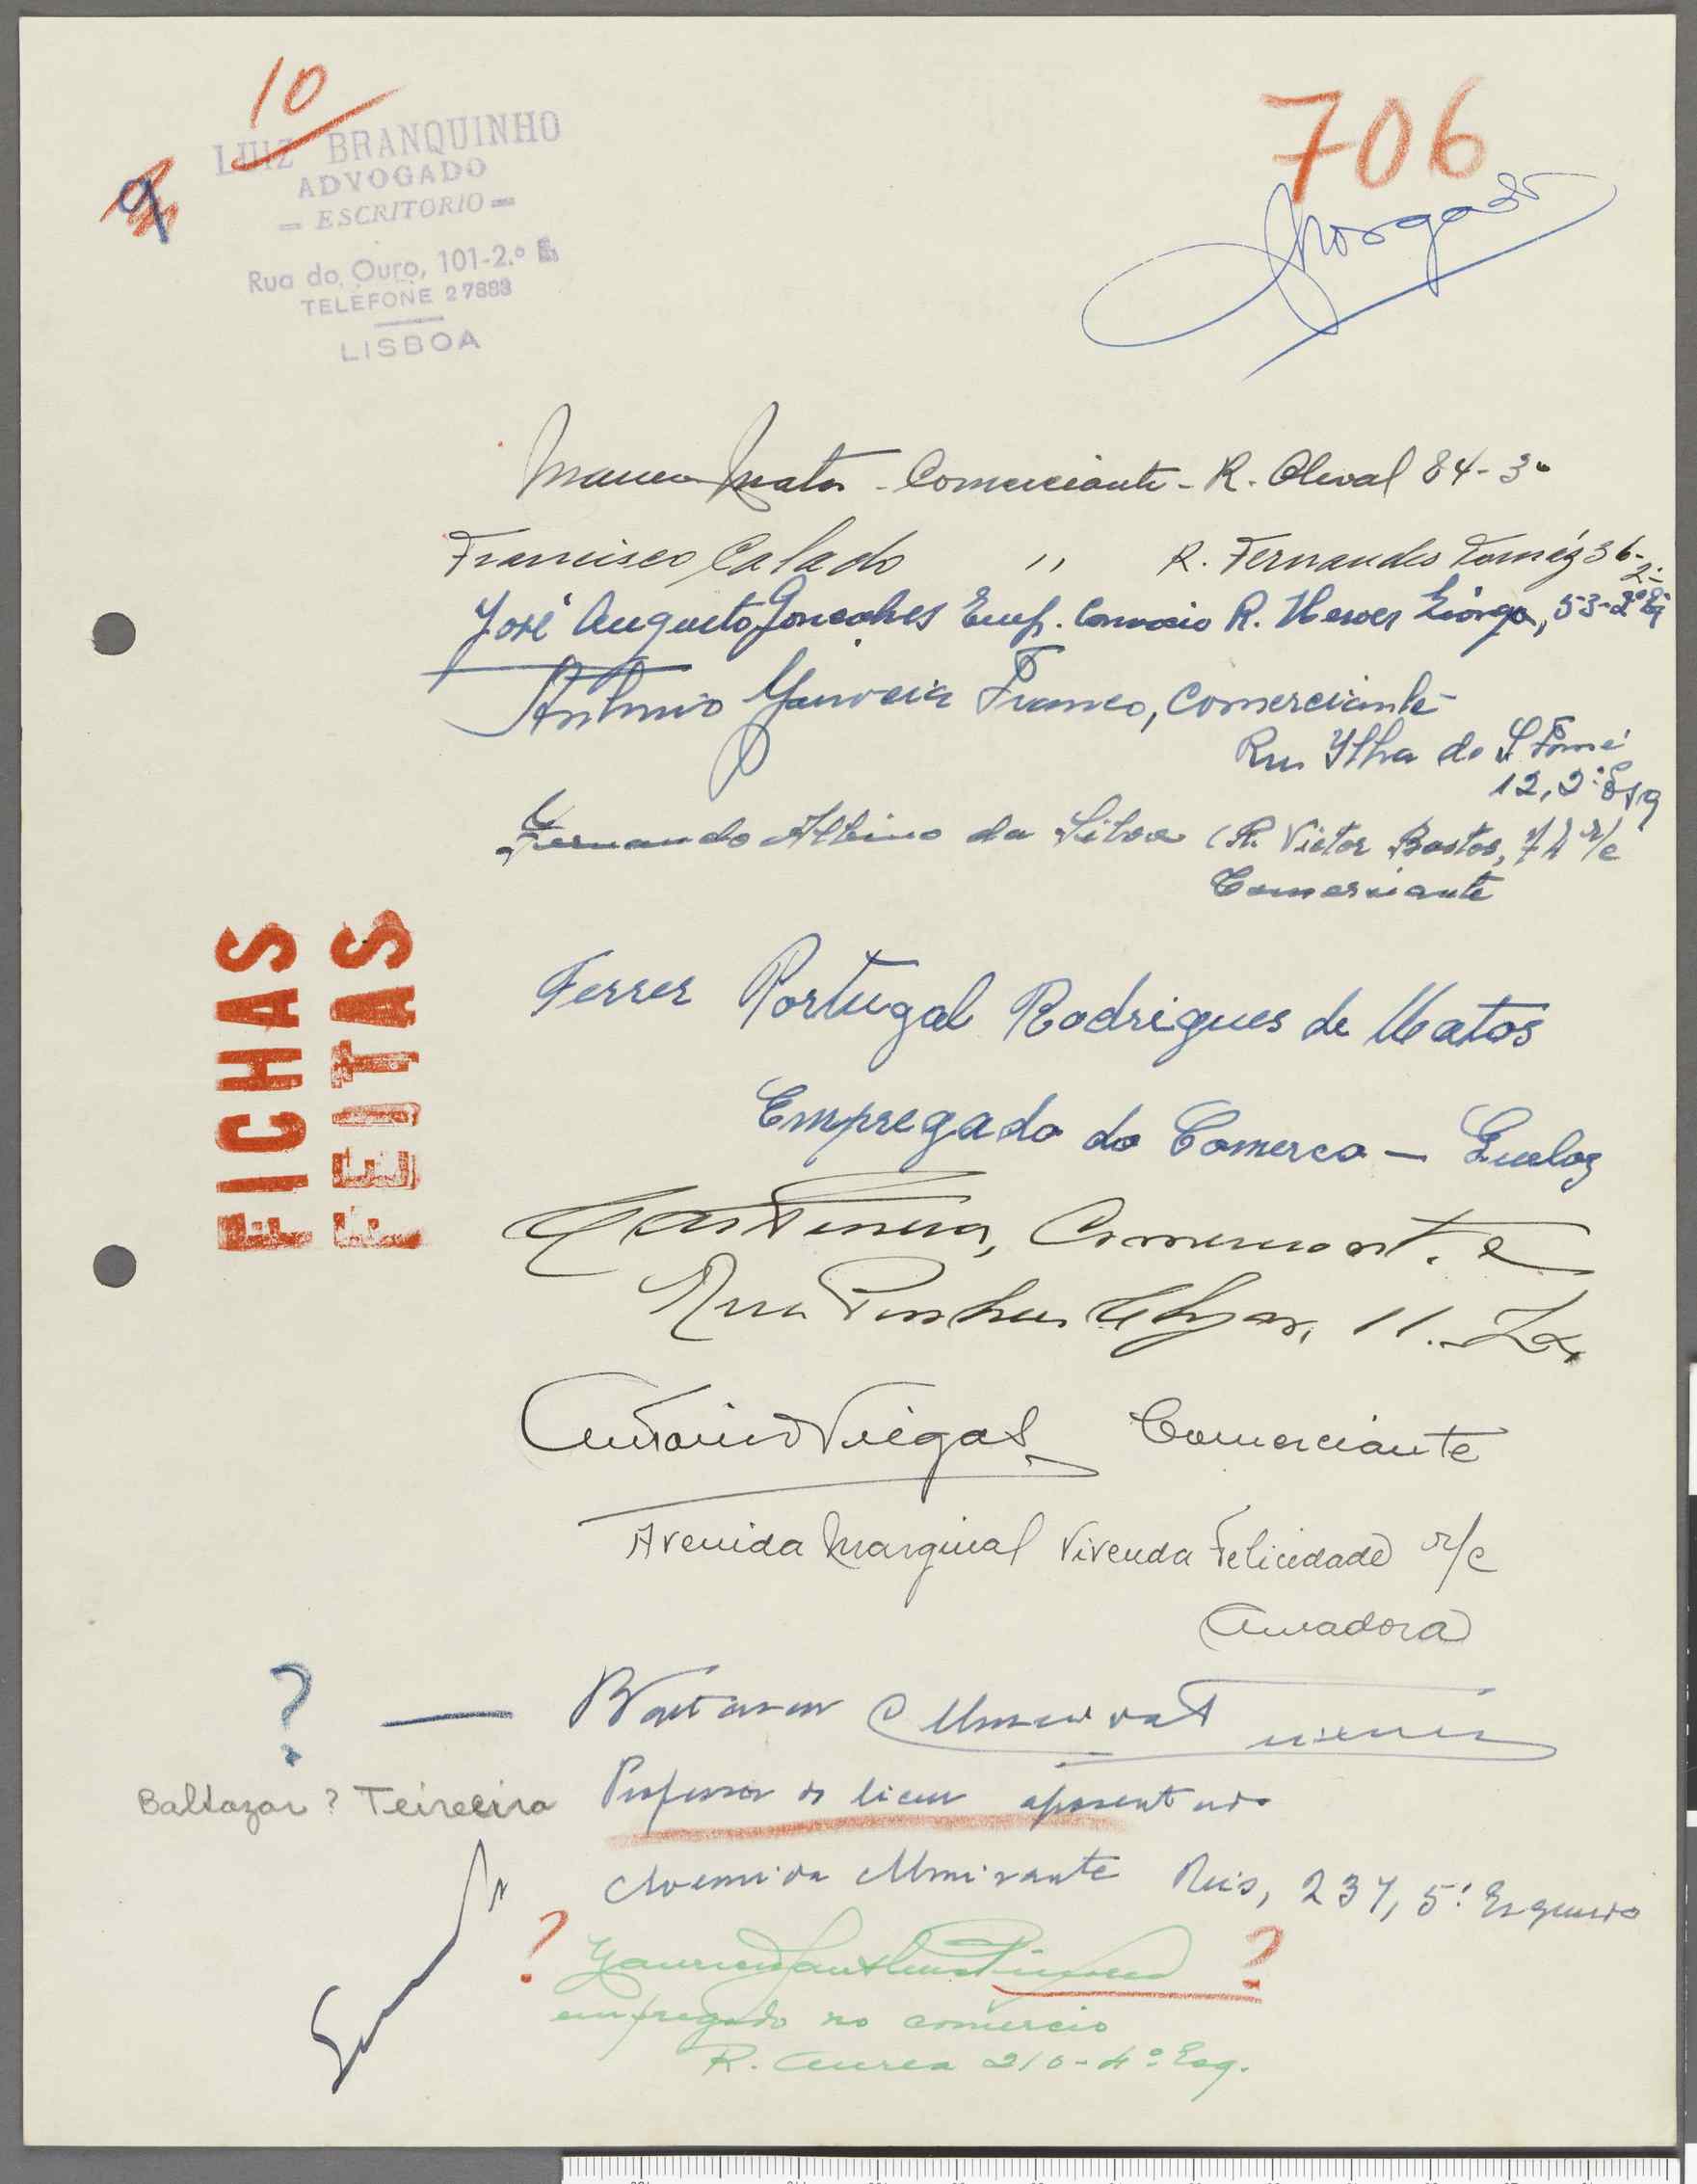 10
706
9
LUIZ BRANQUINHO
ADVOGADO
= ESCRITORIO =
Rua do Ouro, 101-2.º E.
TELEFONE 27893
LISBOA
Morgado
Matos - Comerciante - R. Olival 84-3º
Francisco Calado " R. Fernandes Tomáz 36-2º
José Augusto Gonçalves Emp. Comercio R. Neves 53-2º Eq
António Franco, Comerciante
Rua Ilha de S. Tomé
12, 2º Esq
Fernando Albino da Silva (R. Victor Bastos, 72 r/c
Comerciante
FICHAS
FEITAS
Ferrer Portugal Rodrigues de Matos
Empregado do Comerco - Queluz
Comerciante
Rua 11. Lx,
António Viegas Comerciante
Avenida Marginal Vivenda Felicidade r/c
Amadora
? —
Baltazar ? Teixeira
Professor do liceu aposentado
Avenida Almirante Reis, 237, 5º Esquerdo
? ?
empregado no comércio
R. Aurea 210-4º Esq.